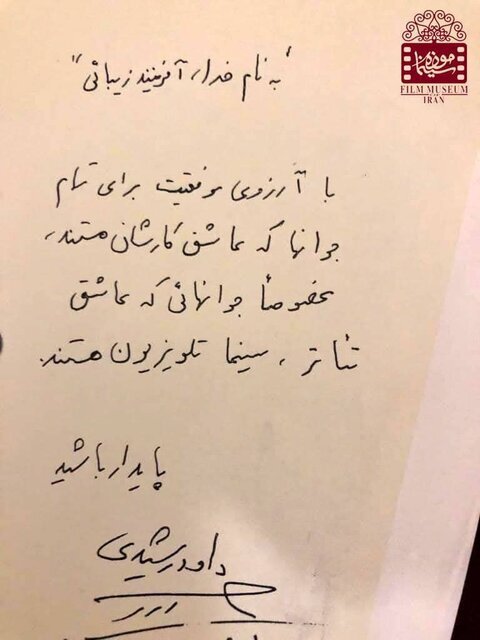 موزه سینما
FILM MUSEUM
IRAN
"به نام خدا، آفریننده زیبائی"
با آرزوی موفقیت برای تمام
جوانها که عاشق کارشان هستند،
بخصوصاً جوانهائی که عاشق
تئاتر، سینما تلویزیون هستند.
پایدار باشید
داود رشیدی